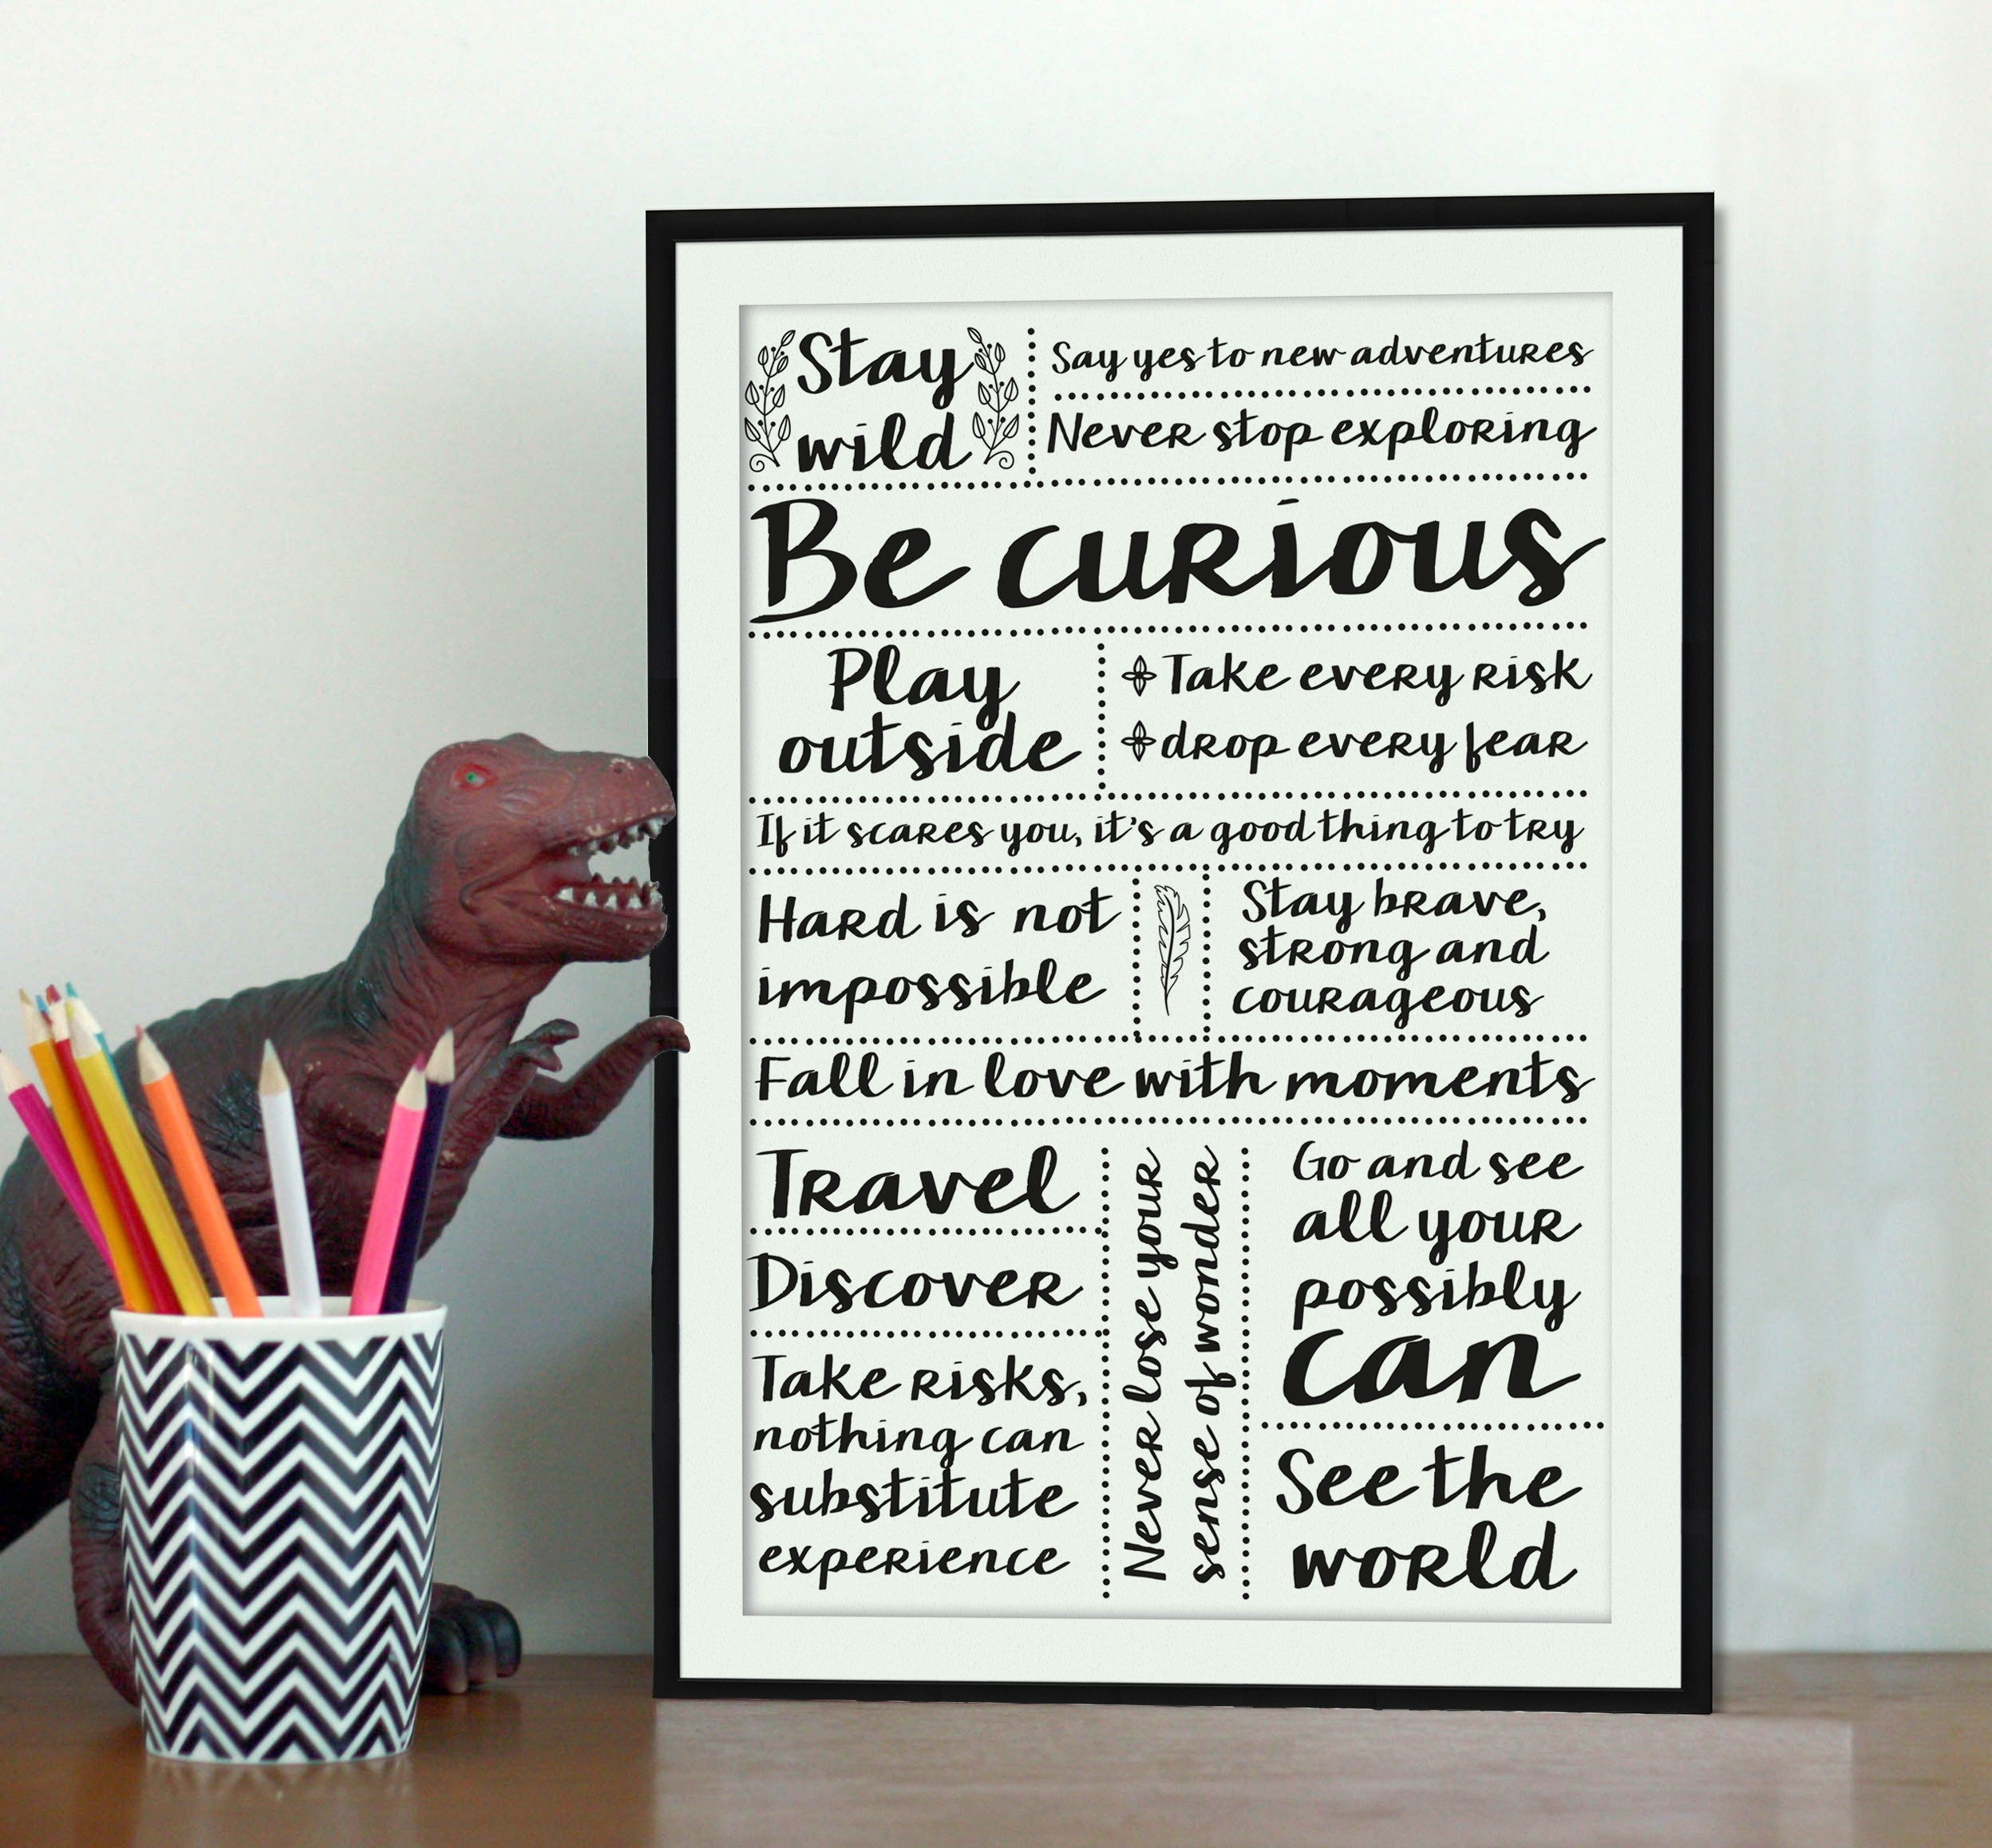 Stay
wild
Say yes to new adventures
Never stop exploring
Be curious
Play
outside
Take every risk
drop every fear
If it scares you, it's a good thing to try
Hard is not
impossible
Stay brave,
strong and
courageous
Fall in love with moments
Travel
Discover
Take risks,
nothing can
substitute
experience
Never lose your
sense of wonder
Go and see
all your
possibly
can
See the
world